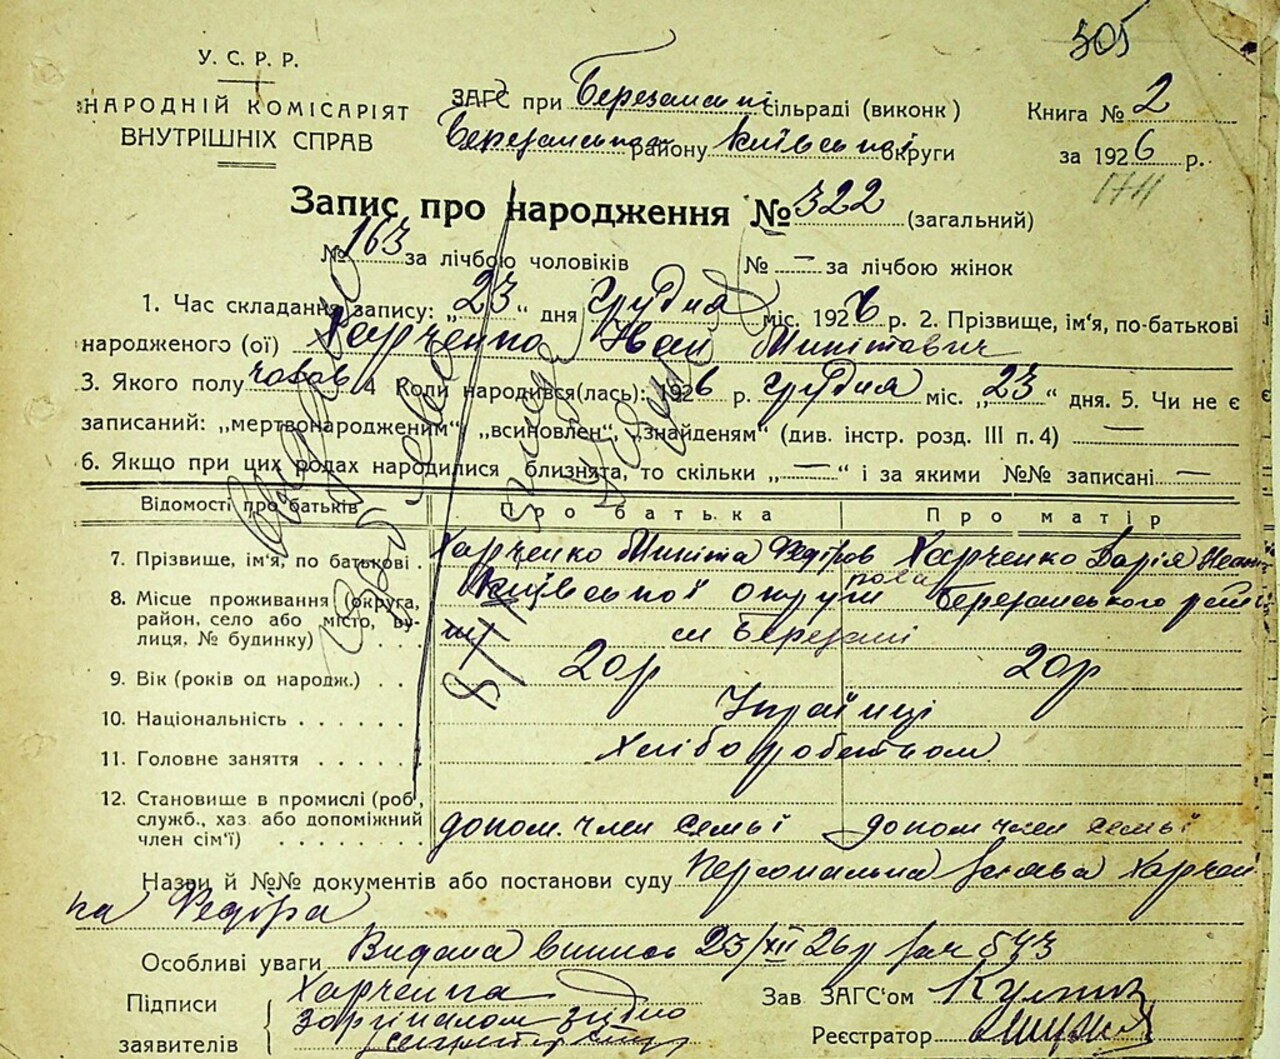 305
У. С. Р. Р.
НАРОДНІЙ КОМІСАРІЯТ
ВНУТРІШНІХ СПРАВ
ЗАГС при Березанські сільраді (виконк)
Березанського району Київської округи
Книга № 2
за 1926 р.
Запис про народження № 322 (загальний)
№ 163 за лічбою чоловіків № — за лічбою жінок
1. Час складання запису: „23“ дня Грудня міс. 1926 р. 2. Прізвище, ім'я, по-батькові
народженого (ої) Харченко Іван Микітович
3. Якого полу чолов 4 Коли народився(лась): 1926 р. Грудня міс. „23“ дня. 5. Чи не є
записаний: „мертвонародженим“, „всиновлен“, „знайденям“ (див. інстр. розд. III п. 4) —
6. Якщо при цих родах народилися близнята, то скільки „—“ і за якими №№ записані —
Відомості про батьків Про батька Про матір
7. Прізвище, ім'я, по батькові . Харченко Микіта Федіров Харченко Дарія Іван
8. Місце проживання (округа, Київської округи Березанського рай
район, село або місто, ву-
лиця, № будинку) . . . см Березані
9. Вік (років од народж.) . . 20р 20р
10. Національність . . . . . . Українці
11. Головне заняття . . . . . Хліборобством
12. Становище в промислі (роб.,
служб., хаз або допоміжний
член сім'ї) . . . . . . . допом. член семьї допом член семьї
Назви й №№ документів або постанови суду Персональна заява Харчен
ка Федіра
Особливі уваги Видана випись 23/XII 26р зач 543
Підписи Харченка
Зав ЗАГС'ом
заявителів з оргіналом згідно
Реєстратор